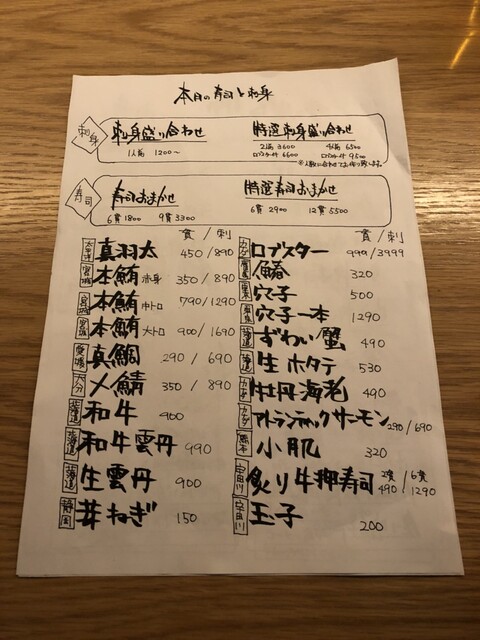 本日の寿司と刺身
刺身
刺身盛り合わせ
1人前 1200〜
特選刺身盛り合わせ
2人前 3600 4人前 6500
ロブスター付 6600 ロブスター付 9500
※人数に合わせてお作り致します。
寿司
寿司おまかせ
6貫 1800 9貫 3300
特選寿司おまかせ
6貫 2900 12貫 5500
貫/刺
真羽太 450/890
宮城 本鮪 赤身 350/890
宮城 本鮪 中トロ 790/1290
宮城 本鮪 大トロ 900/1690
愛媛 真鯛 290/690
大分 〆鯖 350/890
北海道 和牛 900
北海道 和牛雲丹 990
北海道 生雲丹 900
静岡 芽ねぎ 150
貫/刺
カナダ ロブスター 990/3999
320
穴子 500
穴子一本 1290
ずわい蟹 490
北海道 生ホタテ 530
カナダ 牡丹海老 490
カナダ アトランティックサーモン 290/690
熊本 小肌 320
宇田川 炙り牛押寿司 2貫 490/6貫 1290
宇田川 玉子 200